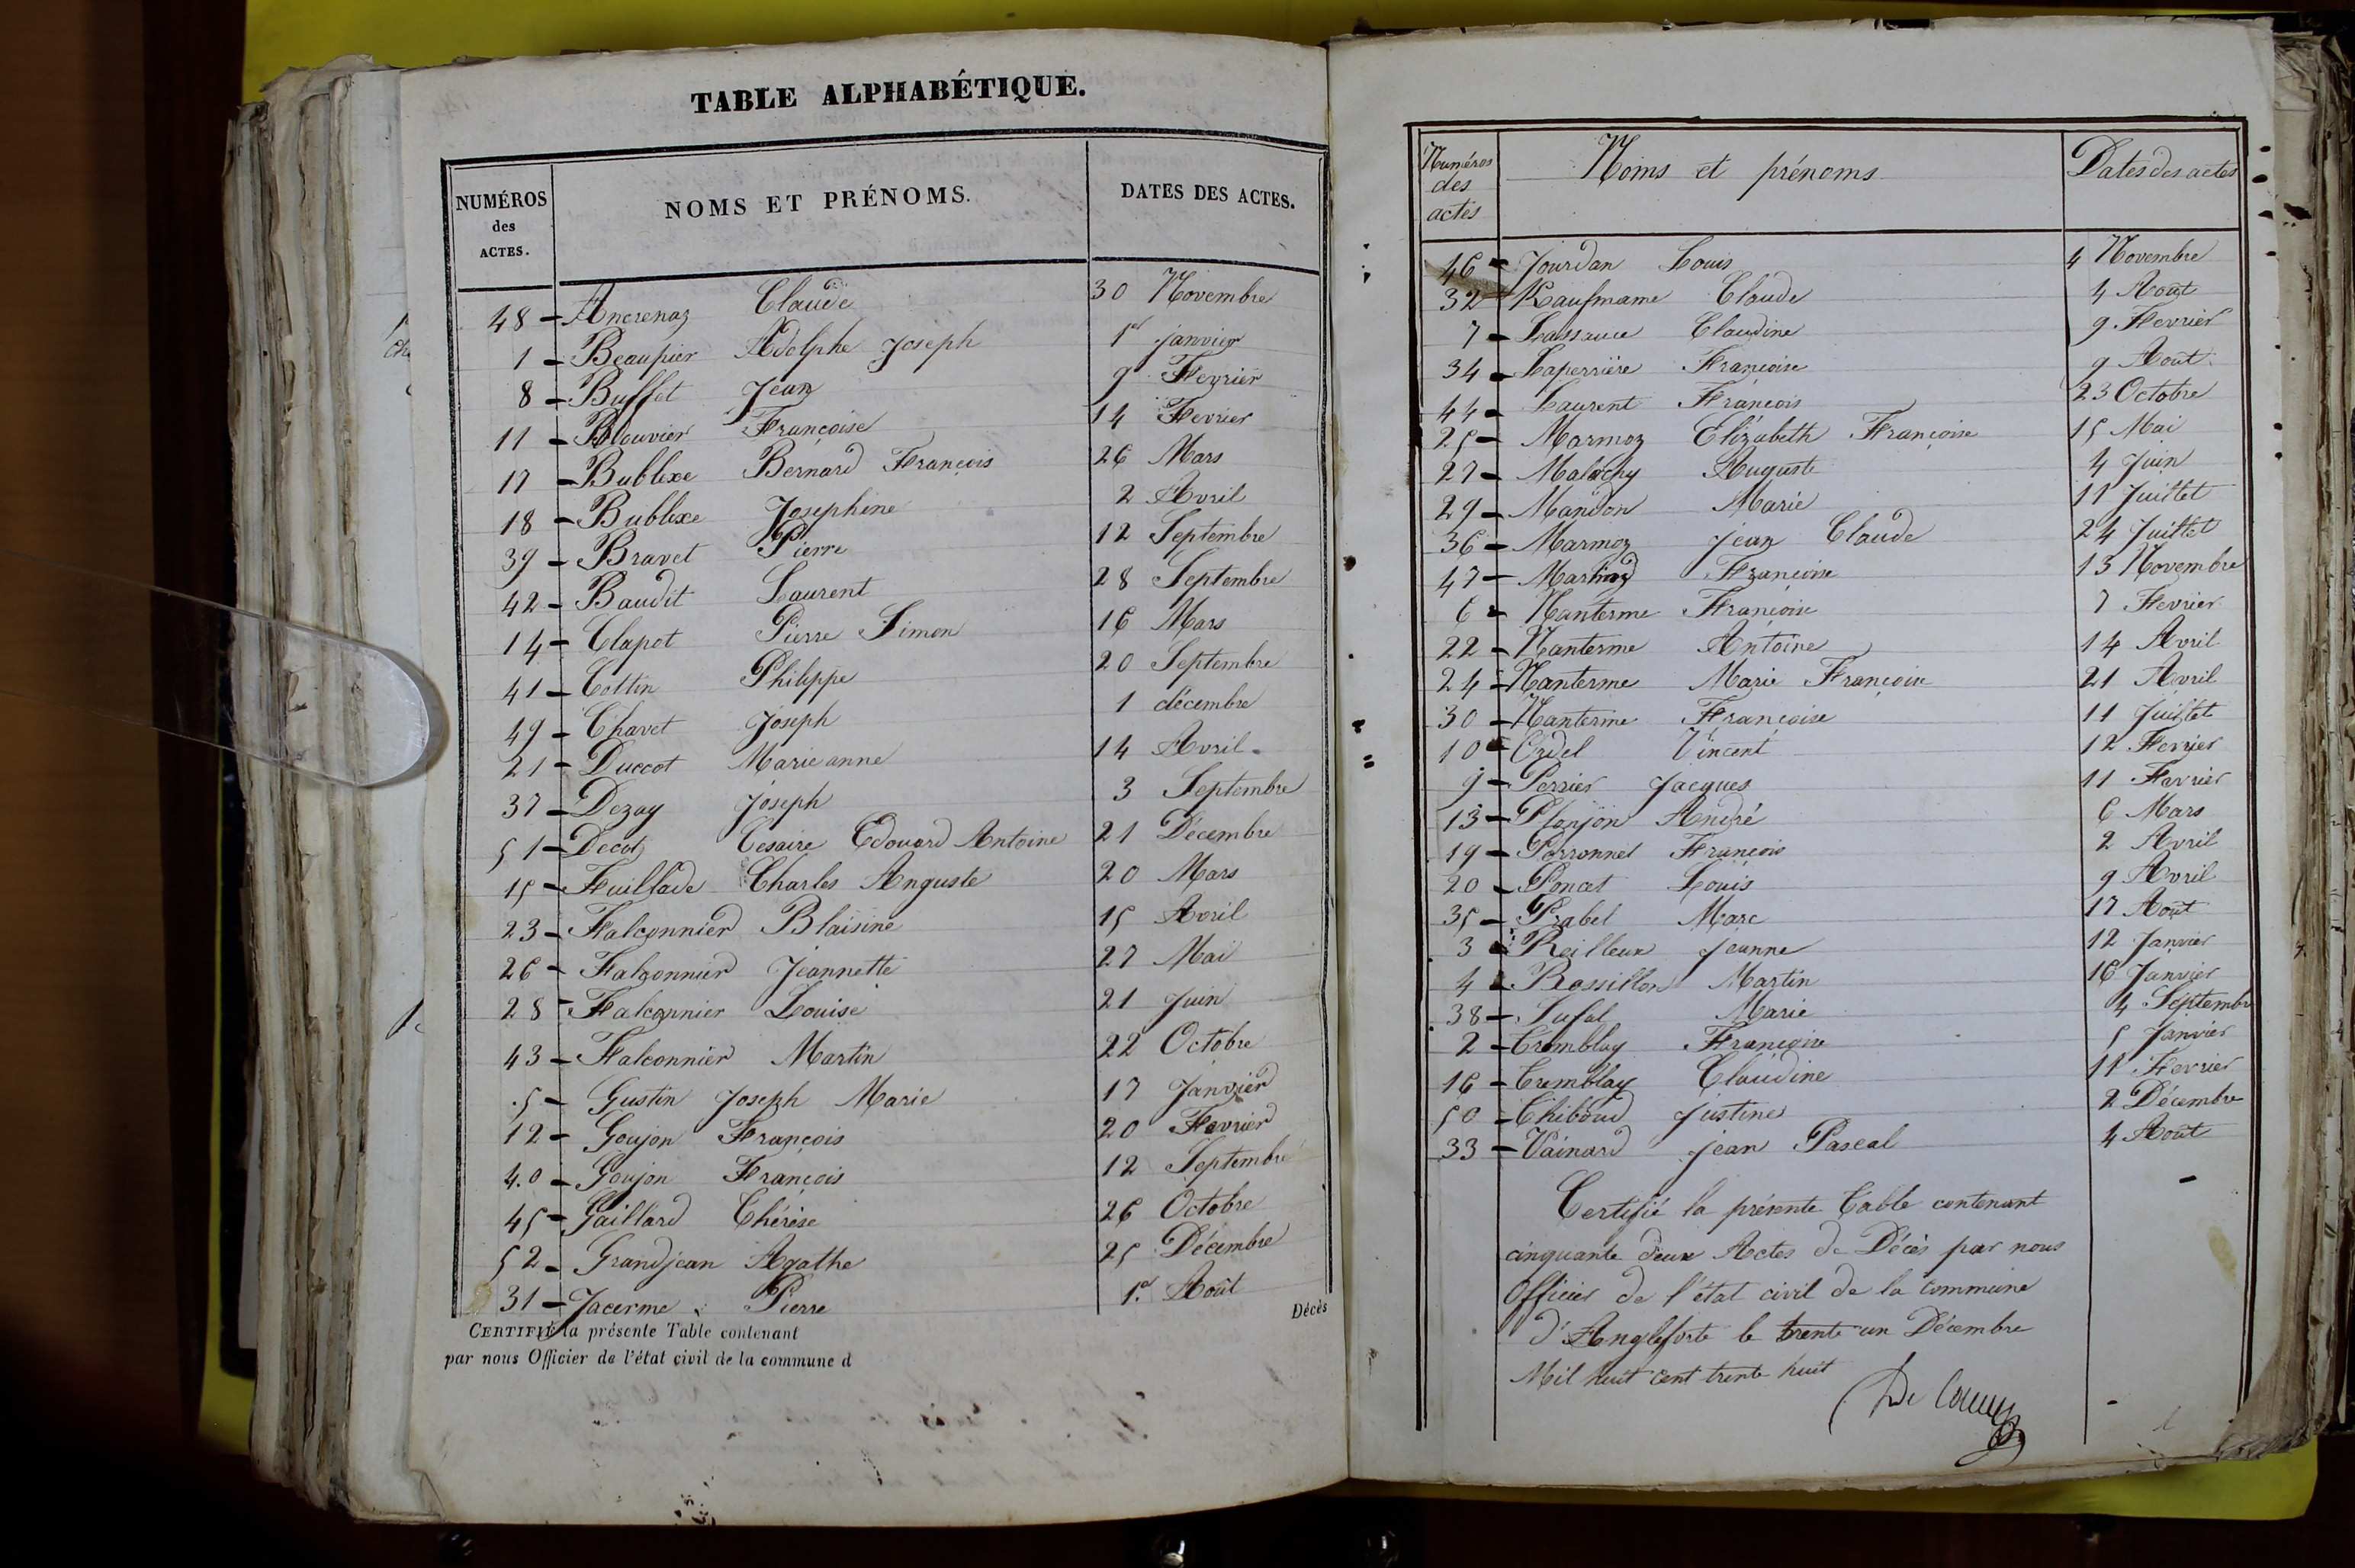 TABLE ALPHABÉTIQUE.
NUMÉROS des ACTES. NOMS ET PRÉNOMS. DATES DES ACTES.
48 - Ancrenaz Claude 30 Novembre
1 - Beaupier Adolphe Joseph 1er janvier
8 - Buffet Jean 9 Fevrier
11 - Blouvier Françoise 14 Fevrier
17 - Bublexe Bernard François 26 Mars
18 - Bublexe Josephine 2 Avril
39 - Bravet Pierre 12 Septembre
42 - Baudit Laurent 28 Septembre
14 - Clapot Pierre Simon 16 Mars
41 - Cottin Philippe 20 Septembre
49 - Chavet Joseph 1 décembre
21 - Duccot Marie anne 14 Avril
37 - Dezay Joseph 3 Septembre
51 - Decot Cesaire Edouard Antoine 21 Décembre
15 - Fuillade Charles Auguste 20 Mars
23 - Falconnier Blaisine 15 Avril
26 - Falconnier Jeannette 27 Mai
28 - Falconnier Louise 21 Juin
43 - Falconnier Martin 22 Octobre
5 - Gustin Joseph Marie 17 Janvier
12 - Goujon François 20 Fevrier
40 - Goujon François 12 Septembre
45 - Gaillard Thérèse 26 Octobre
52 - Grandjean Agathe 25 Décembre
31 - Jacerme Pierre 1er Août
Décès
CERTIFIÉ la présente Table contenant
par nous Officier de l'état civil de la commune d
Numéros des actes Noms et prénoms Dates des actes
46 - Jourdan Louis 4 Novembre
32 - Kaufmame Claude 4 Août
7 - Lassauce Claudine 9 Fevrier
34 - Laperrière Françoise 9 Août
44 - Laurent François 23 Octobre
25 - Marmoz Elizabeth Françoise 15 Mai
27 - Malochy Auguste 4 Juin
29 - Mandon Marie 11 Juillet
36 - Marmoz Jean Claude 24 Juillet
47 - Martinod Françoise 13 Novembre
6 - Nanterme Françoise 7 Fevrier
22 - Nanterme Antoine 14 Avril
24 - Nanterme Marie Françoise 21 Avril
30 - Nanterme Françoise 11 Juillet
10 - Ordel Vincent 12 Fevrier
9 - Perrier Jacques 11 Fevrier
13 - Plonjon André 6 Mars
19 - Perronnet François 2 Avril
20 - Poncet Louis 9 Avril
35 - Prabel Marc 17 Août
3 - Reilleux Jeanne 12 Janvier
4 - Rossillon Martin 16 Janvier
38 - Sufal Marie 4 Septembre
2 - Tremblay Françoise 5 Janvier
16 - Tremblay Claudine 11 Fevrier
50 - Thiboud Justine 2 Décembre
33 - Vainard Jean Pascal 4 Août
Certifié la présente Table contenant
cinquante deux Actes de Décès par nous
Officier de l'état civil de la commune
d'Anglefort le trente un Décembre
Mil huit cent trente huit